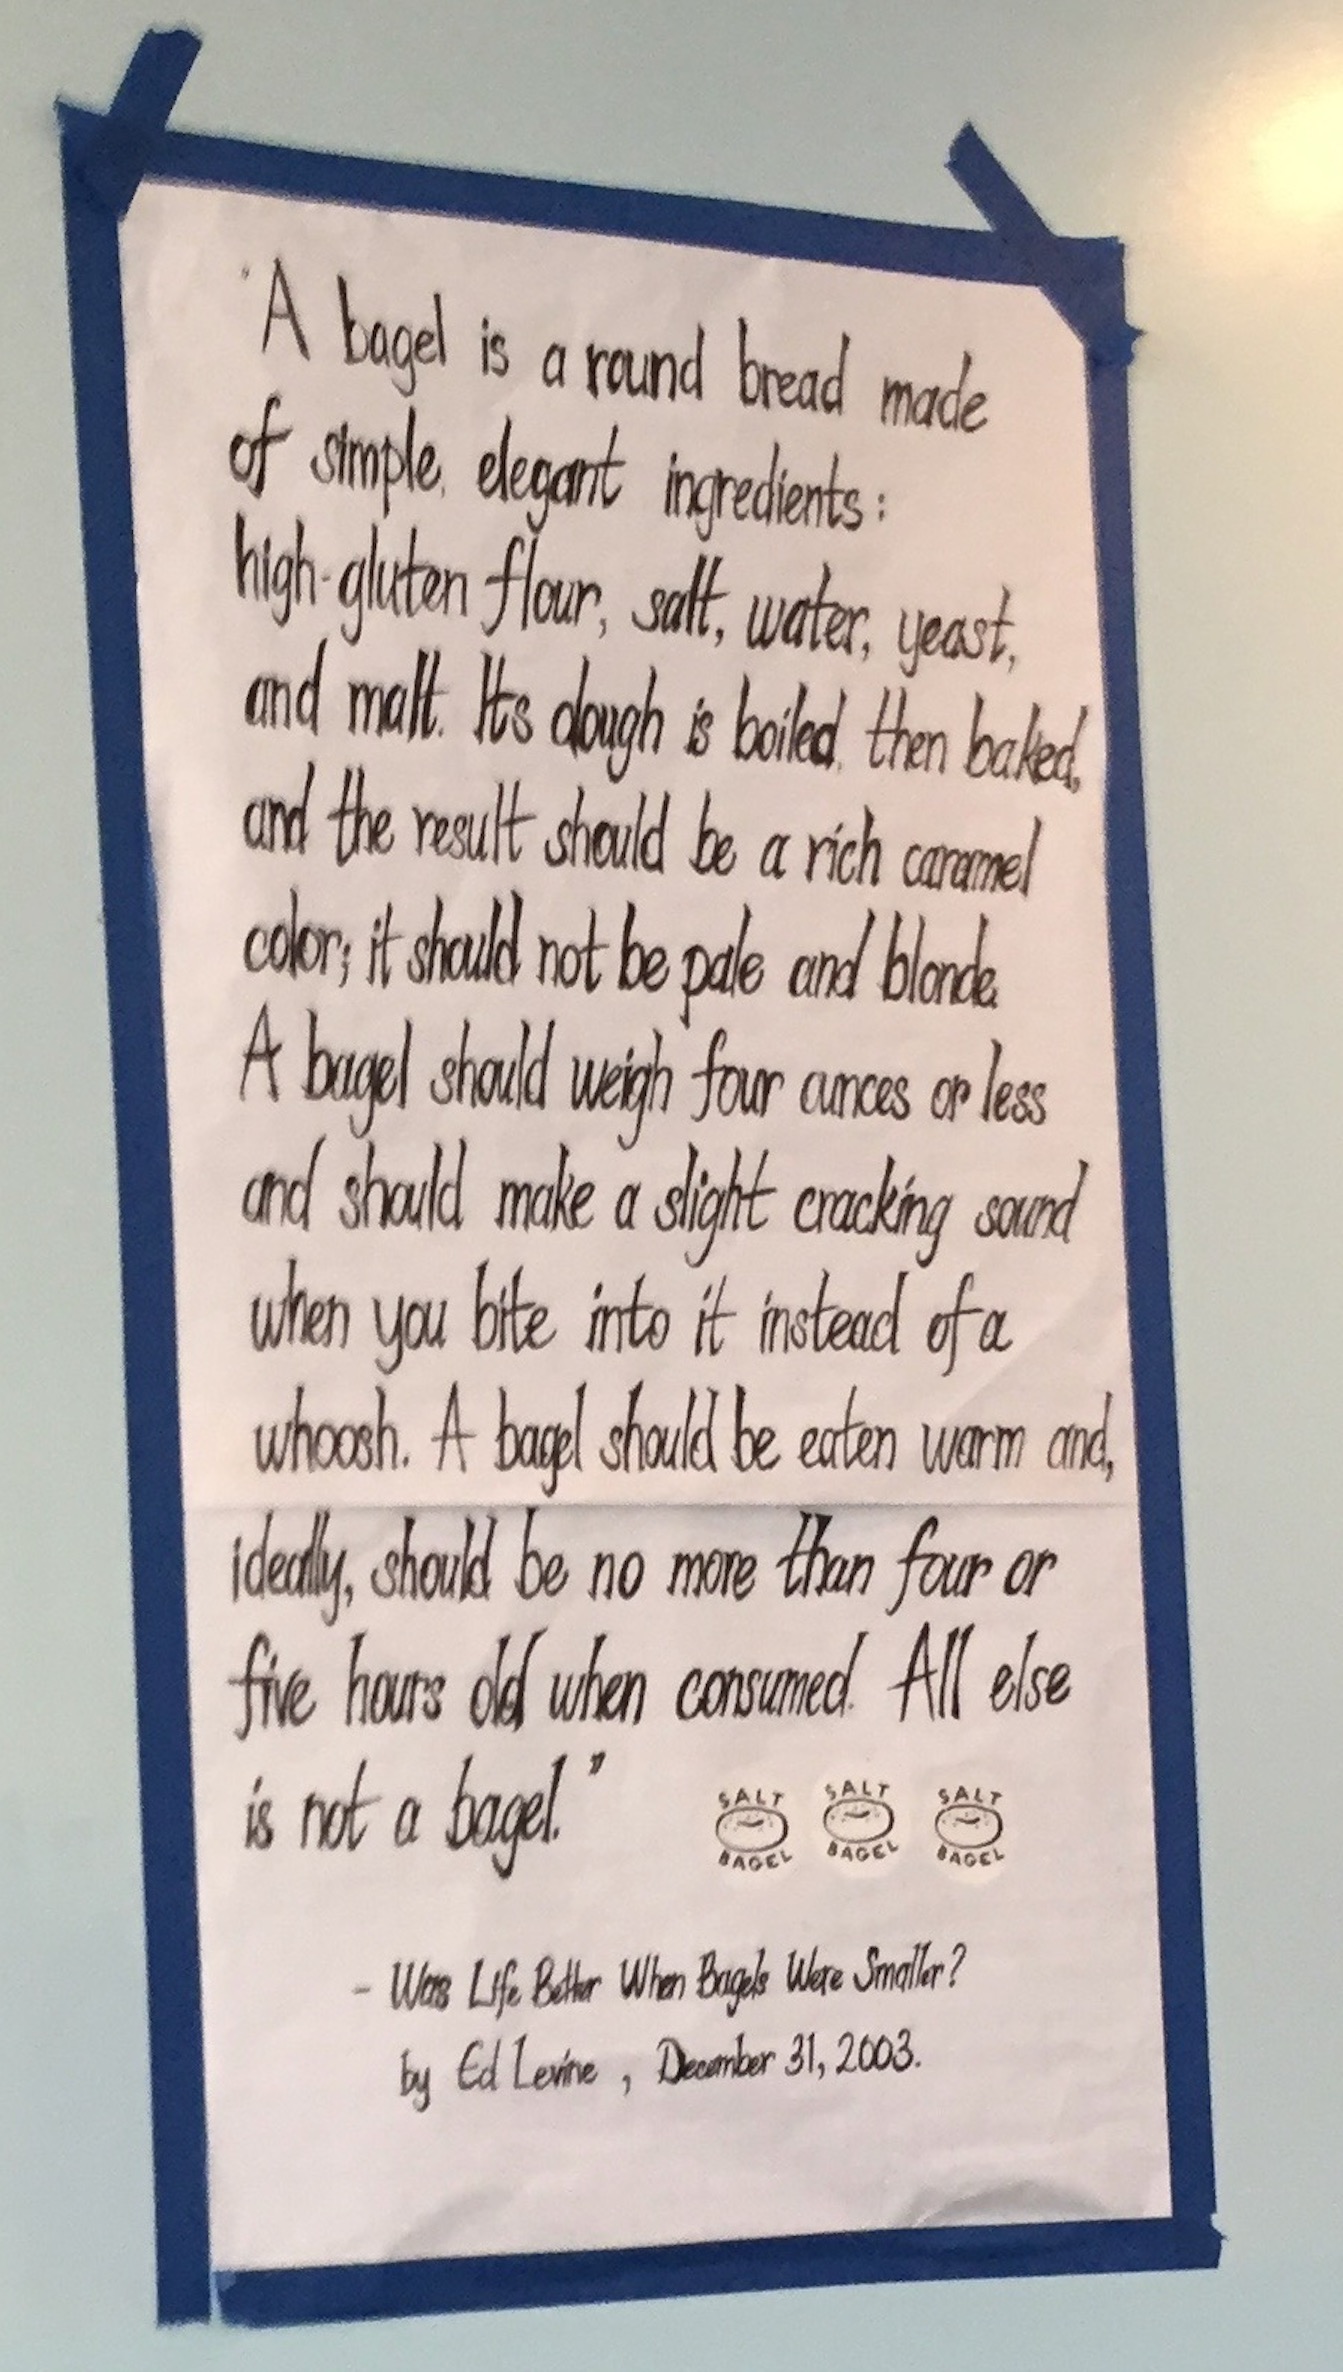 "A bagel is a round bread made
of simple, elegant ingredients:
high-gluten flour, salt, water, yeast,
and malt. Its dough is boiled, then baked,
and the result should be a rich caramel
color; it should not be pale and blonde.
A bagel should weigh four ounces or less
and should make a slight cracking sound
when you bite into it instead of a
whoosh. A bagel should be eaten warm and,
ideally, should be no more than four or
five hours old when consumed. All else
is not a bagel."
SALT BAGEL SALT BAGEL SALT BAGEL
- Was Life Better When Bagels Were Smaller?
by Ed Levine, December 31, 2003.